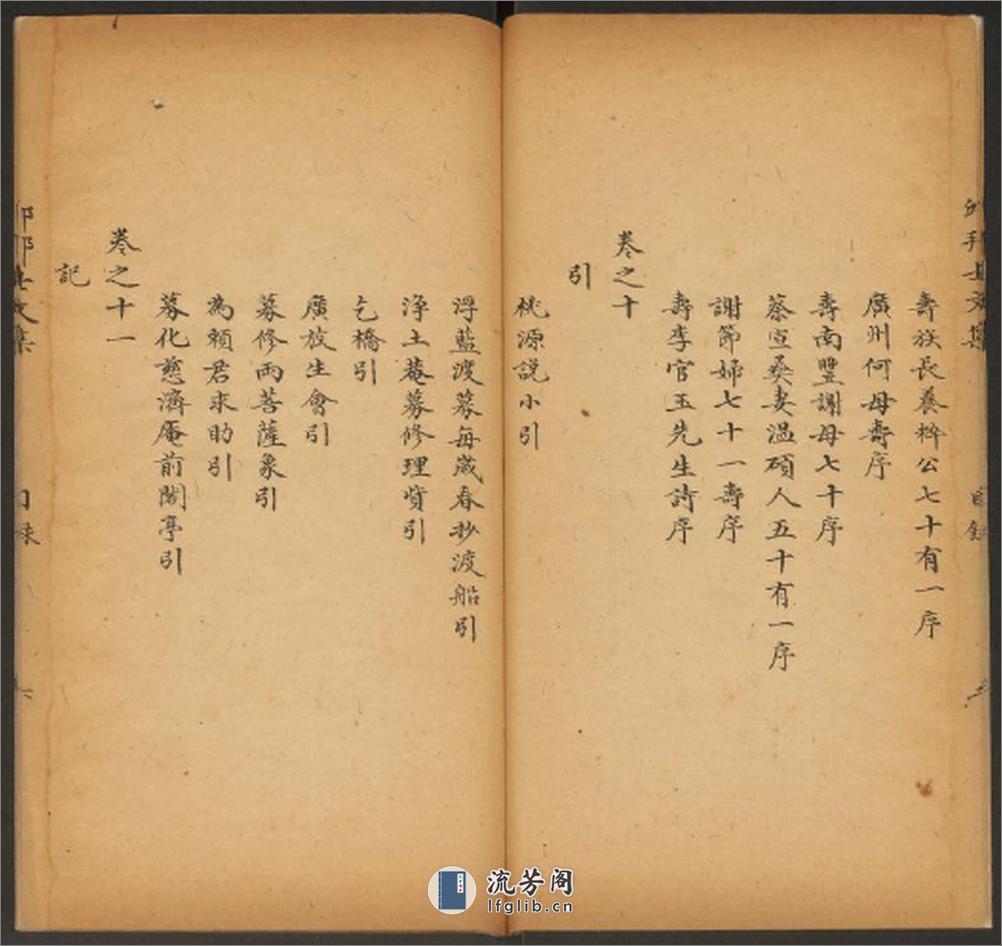 壽族長養粹公七十有一序
廣州何母壽序
壽南豐謝母七十序
蔡宣桑妻溫碩人五十有一序
謝節婦七十一壽序
壽李官玉先生詩序
卷之十
引
桃源説小引
浮藍渡募每歲春抄渡船引
淨土菴募修理貲引
乞橋引
廣放生會引
募修兩菩薩象引
為賴君求助引
募化慈濟庵前關亭引
卷之十一
記
目錄
流芳阁
lfglib.cn